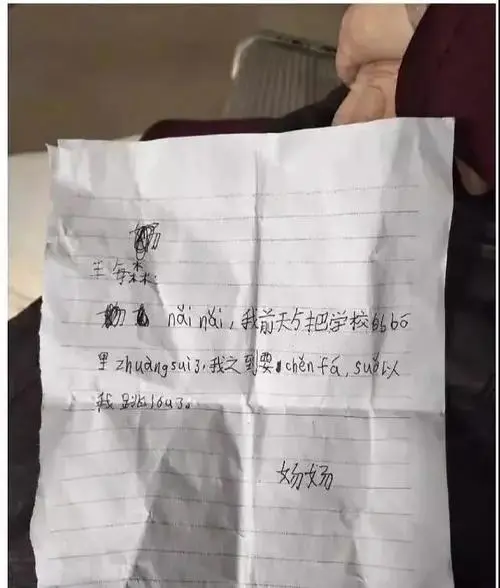 nǎi nǎi，我前天与把学校的bō
里zhuàngsuì了，我之到要chěnfá，suǒ以
我跳lóu了。